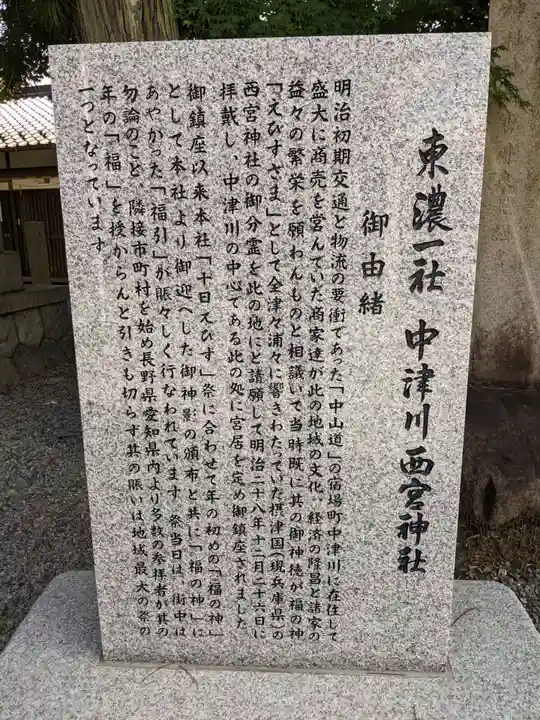 東濃一社 中津川西宮神社
御由緒
明治初期交通と物流の要衝であった「中山道」の宿場町中津川に在住して
盛大に商売を営んでいた商家達が此の地域の文化、経済の隆昌と諸家の
益々の繁栄を願わんものと相議いて当時既に其の御神徳が福の神
「えびすさま」として全津々浦々に響きわたっていた摂津国(現兵庫県)の
西宮神社の御分霊を此の地にと請願して明治二十八年十二月二十六日に
拝戴し、中津川の中心である此の処に宮居を定め御鎮座されました
御鎮座以来本社「十日えびす」祭に合わせて年の初めの「福の神」
として本社より御迎へした御神影の頒布と共に「福の神」に
あやかった「福引」が賑々しく行なわれています。祭当日は、街中は
勿論のこと、隣接市町村を始め長野県愛知県内より多数の参拝者が其の
年の「福」を授からんと引きも切らず其の賑いは地域最大の祭の
一つとなっています